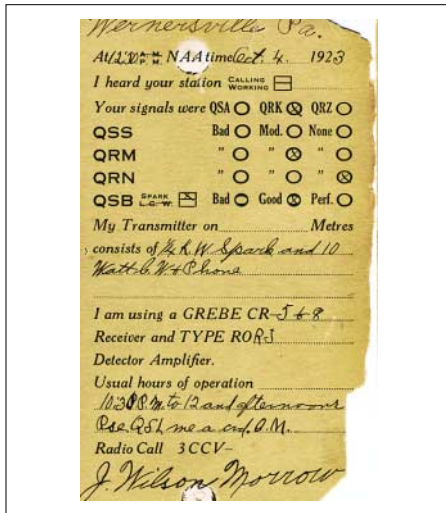 Wernersville Pa.
At 12:10 A.M. P.M. NAA time Oct. 4. 1923
I heard your station CALLING WORKING
Your signals were QSA QRK QRZ
QSS Bad Mod. None
QRM " " "
QRN " " "
QSB SPARK L.C.W. Bad Good Perf.
My Transmitter on Metres
consists of ¼ K.W Spark and 10
Watt C.W & Phone
I am using a GREBE CR-5 & 8
Receiver and TYPE RORJ
Detector Amplifier.
Usual hours of operation
10:30 P.M. to 12 and afternoons
Pse QSL me a crd. O.M.
Radio Call 3CCV-
J. Wilson Morrow